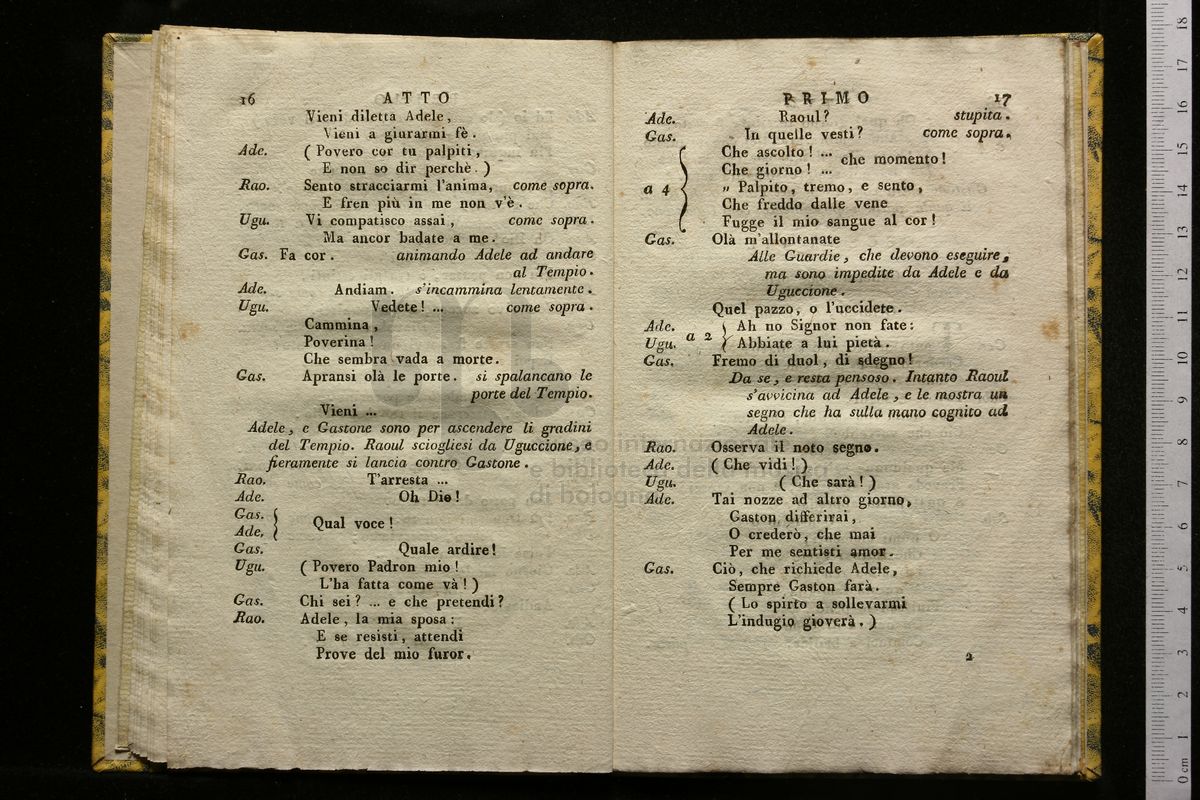 16 ATTO
Vieni diletta Adele,
Vieni a giurarmi fè.
Ade. ( Povero cor tu palpiti,
E non so dir perchè. )
Rao. Sento stracciarmi l'anima, come sopra.
E fren più in me non v'è.
Ugu. Vi compatisco assai, come sopra.
Ma ancor badate a me.
Gas. Fa cor. animando Adele ad andare
al Tempio.
Ade. Andiam. s'incammina lentamente.
Ugu. Vedete! ... come sopra.
Cammina,
Poverina!
Che sembra vada a morte.
Gas. Apransi olà le porte. si spalancano le
porte del Tempio.
Vieni ...
Adele, e Gastone sono per ascendere li gradini
del Tempio. Raoul sciogliesi da Uguccione, e
fieramente si lancia contro Gastone.
Rao. T'arresta ...
Ade. Oh Dio!
Gas. {
Qual voce!
Ade. {
Gas. Quale ardire!
Ugu. ( Povero Padron mio!
L'ha fatta come và! )
Gas. Chi sei? ... e che pretendi?
Rao. Adele, la mia sposa:
E se resisti, attendi
Prove del mio furor.
PRIMO 17
Ade. Raoul? stupita.
Gas. In quelle vesti? come sopra.
Che ascolto! ... che momento!
Che giorno! ...
a 4 { „ Palpito, tremo, e sento,
Che freddo dalle vene
Fugge il mio sangue al cor!
Gas. Olà m'allontanate
Alle Guardie, che devono eseguire,
ma sono impedite da Adele e da
Uguccione.
Quel pazzo, o l'uccidete.
Ade. a 2 { Ah no Signor non fate:
Ugu. Abbiate a lui pietà.
Gas. Fremo di duol, di sdegno!
Da se, e resta pensoso. Intanto Raoul
s'avvicina ad Adele, e le mostra un
segno che ha sulla mano cognito ad
Adele.
Rao. Osserva il noto segno.
Ade. ( Che vidi! )
Ugu. ( Che sarà! )
Ade. Tai nozze ad altro giorno,
Gaston differirai,
O crederò, che mai
Per me sentisti amor.
Gas. Ciò, che richiede Adele,
Sempre Gaston farà.
( Lo spirto a sollevarmi
L'indugio gioverà. )
2